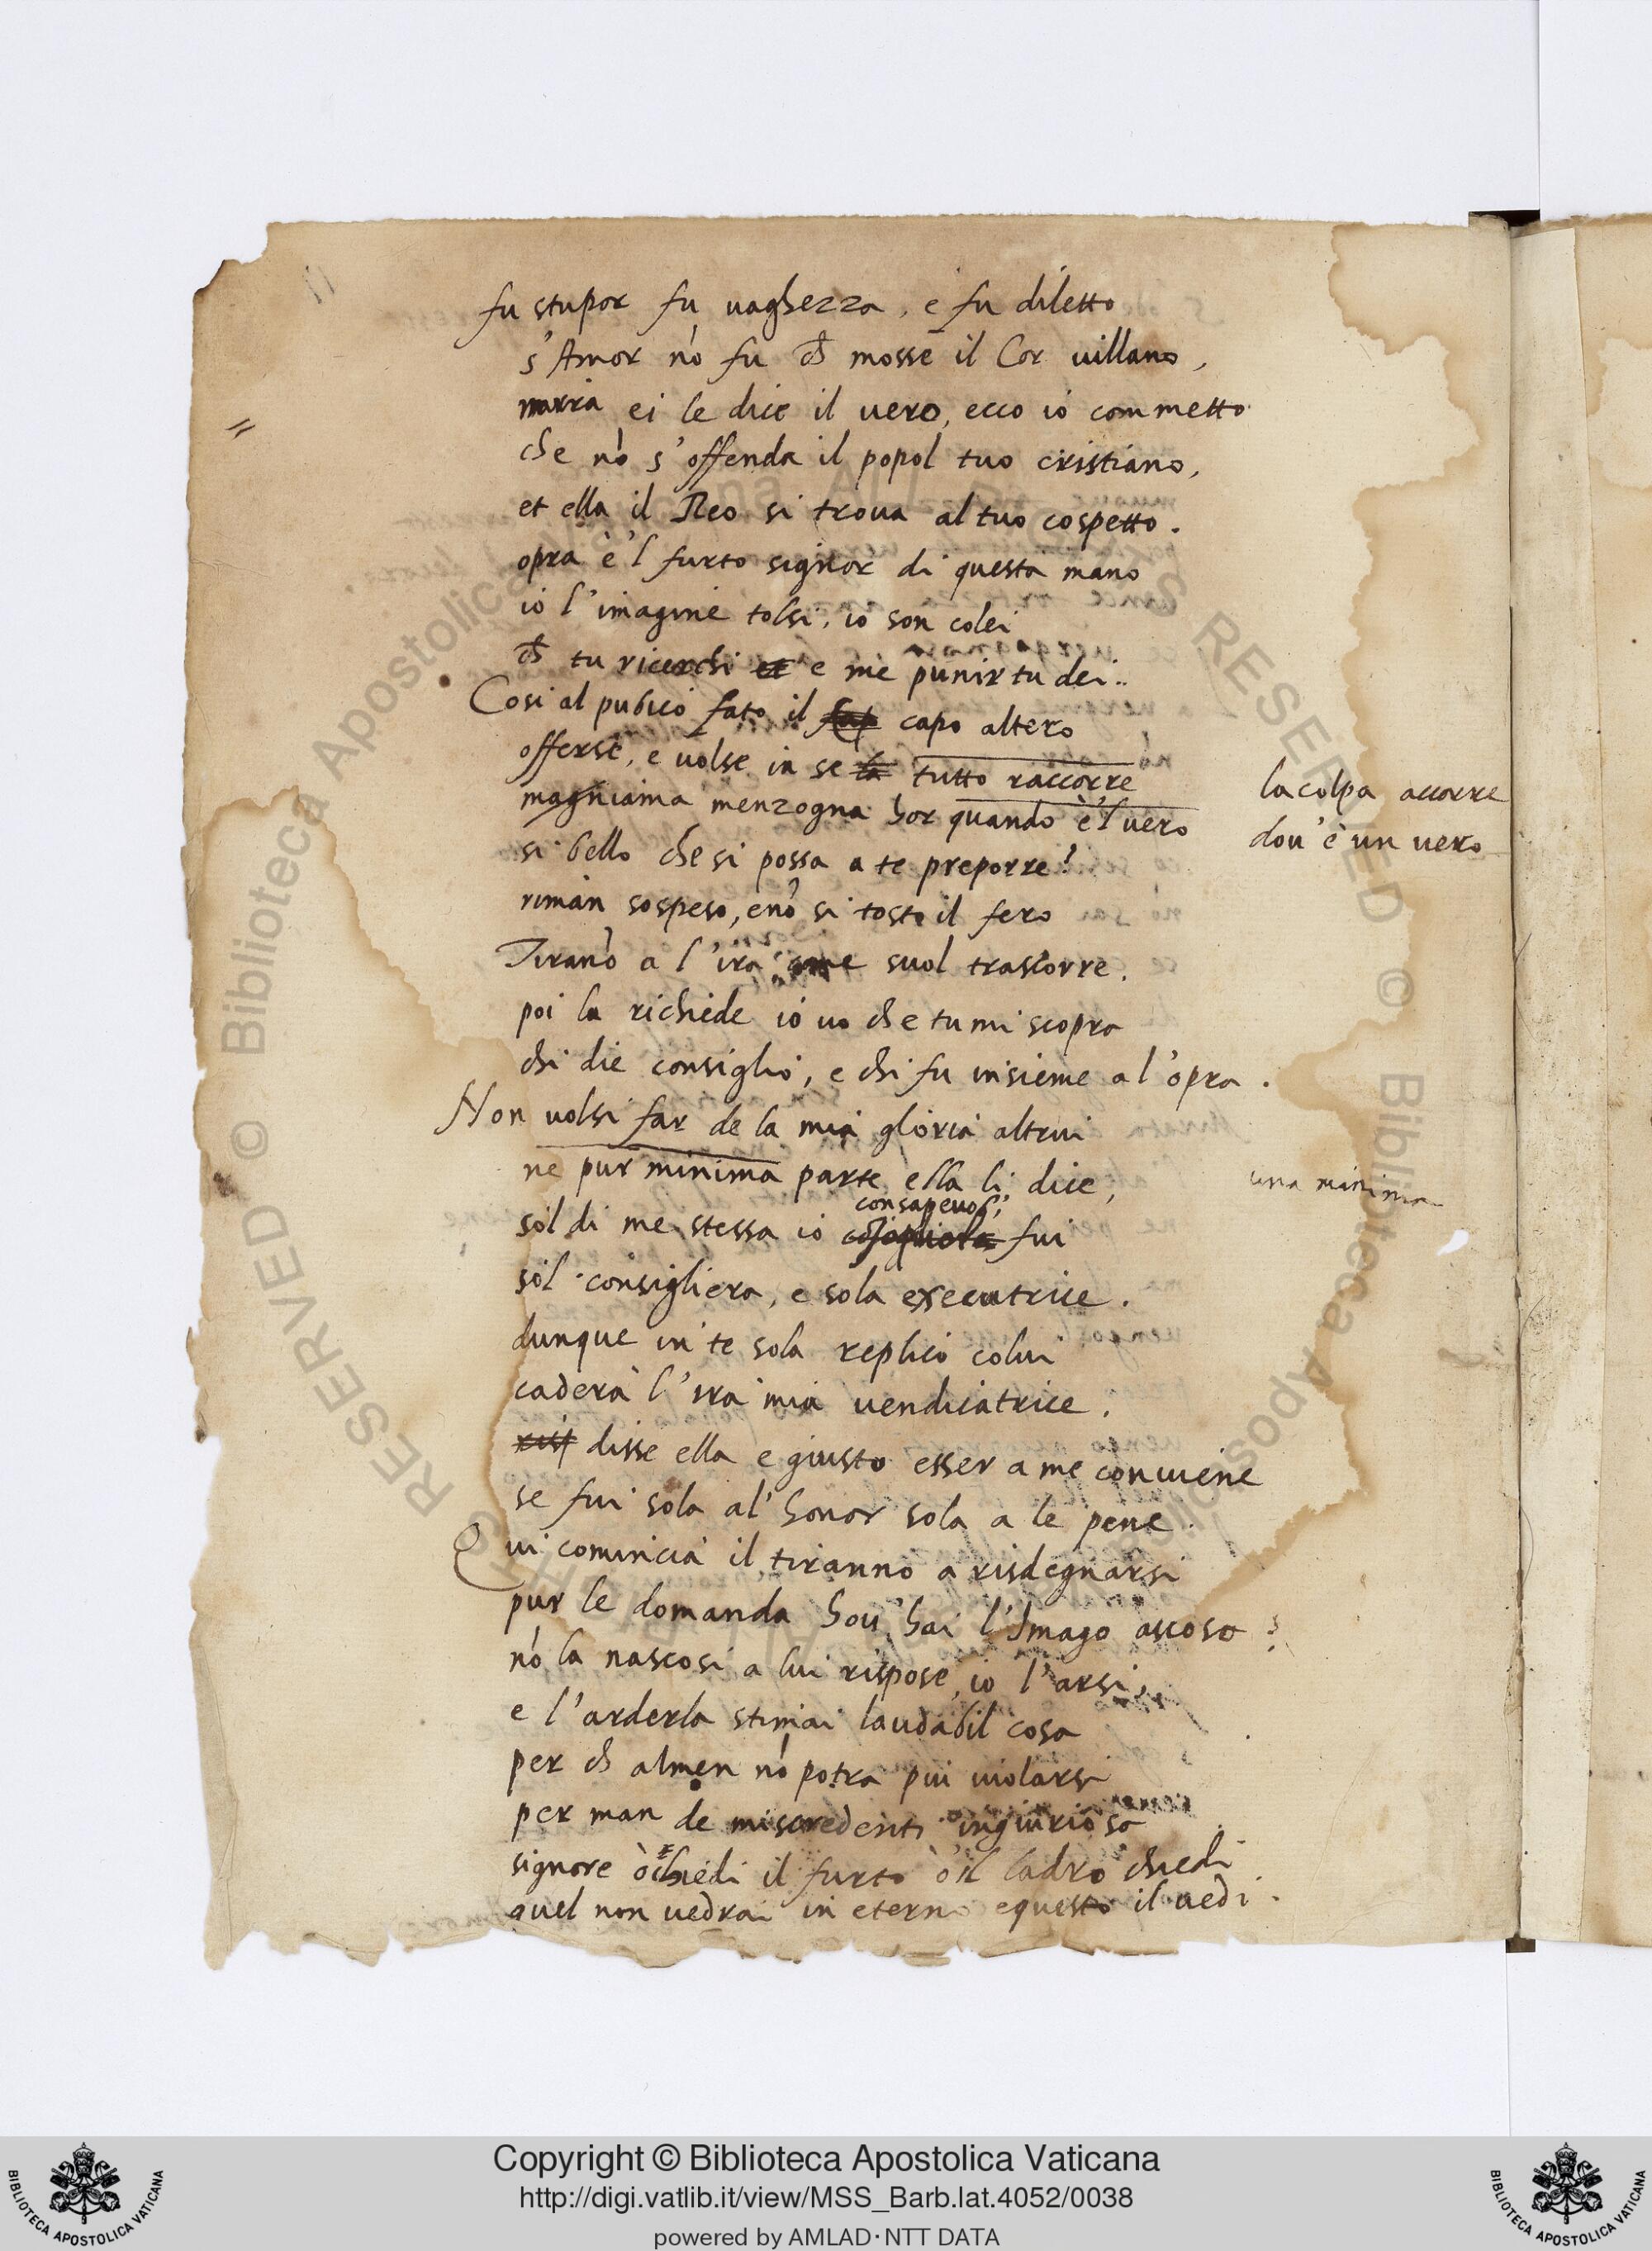 fu stupor fu vaghezza, e fu diletto
s'Amor nó fu ch mosse il Cor villano,
narra ei le dice il vero, ecco io commetto
che nó s'offenda il popol tuo cristiano,
et ella il Reo si trova al tuo cospetto.
opra è'l furto signor di questa mano
io l'imagine tolsi, io son colei
ch tu ricerchi et e me punir tu dei..
Cosi al publico fato il cap capo altero
offerse, e volse in se la tutto raccorre
la colpa accorre
magnaima menzogna hor quando è'l vero
dov'è un vero
si bello che si possa a te preporre?
riman sospeso, e nó si tosto il fero
Tirano a l'ira come suol trascorre.
poi la richiede io vo che tu mi scopra
chi die consiglio, e chi fu insieme a l'opra.
Non volsi far de la mia gloria altrui
ne pur minima parte, ella li dice,
una minima
consapevol,
sol di me stessa io fui
sol consigliera, e sola executrice.
dunque in te sola replicò colui
caderà l'ira mia vendicatrice.
disse ella e giusto esser a me conviene
se fui sola al'honor sola a le pene.
Qui comincia il tiranno a risdegnarsi
pur le domanda hov'hai l'Imago ascosa?
nó la nascosi a lui rispose, io l'arsi,
e l'arderla stimai laudabil cosa
per ch almen nó potra piu violarsi
per man de miscredenti ingiuriosa
signore ò chiedi il furto ò il ladro chiedi
quel non vedrai in eterno e questo il vedi.
Copyright © Biblioteca Apostolica Vaticana
http://digi.vatlib.it/view/MSS_Barb.lat.4052/0038
powered by AMLAD·NTT DATA
BIBLIOTECA APOSTOLICA VATICANA
BIBLIOTECA APOSTOLICA VATICANA